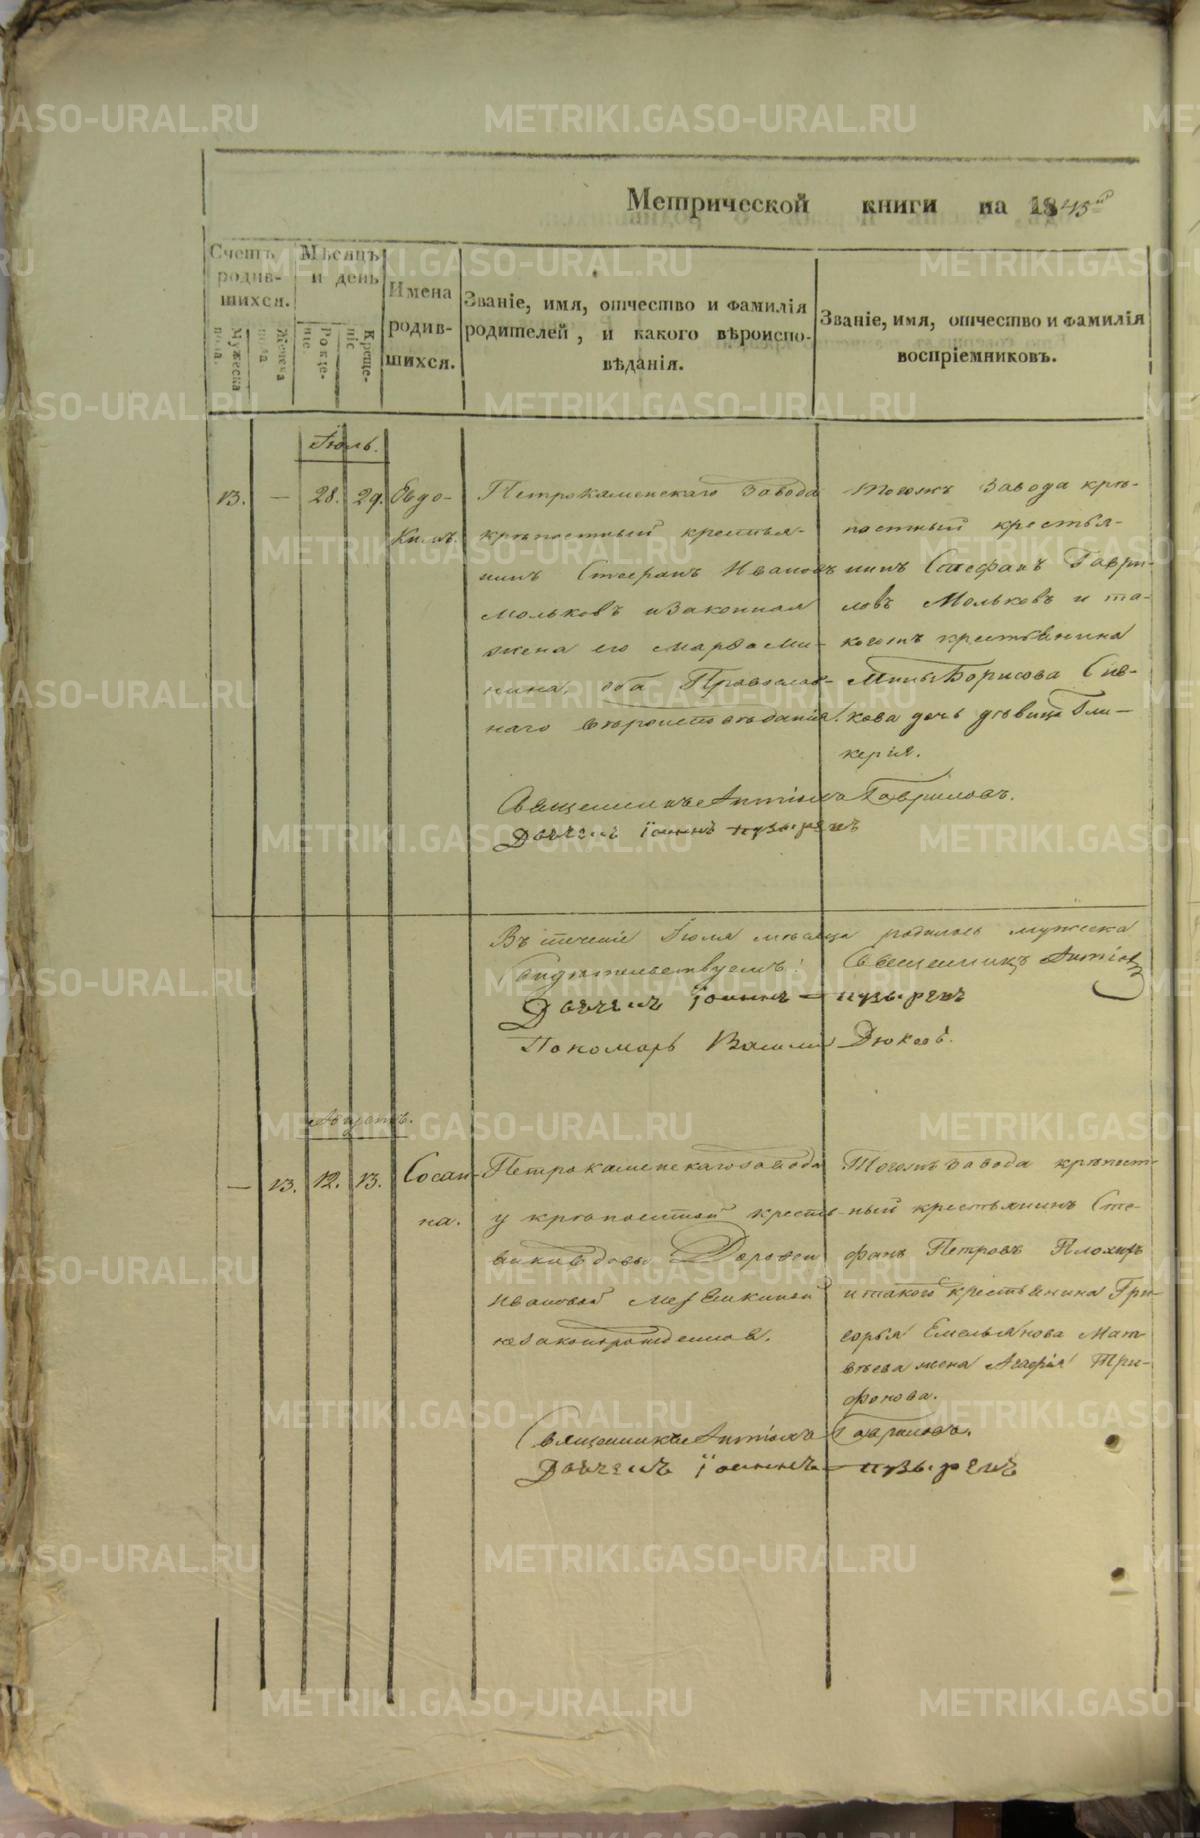 Метрической книги на 1845й
Счетъ родив-шихся.
Мужеска пола.
Женска пола
Мѣсяцъ и день
Рожде-ніе
Креще-ніе
Имена родив-шихся.
Званіе, имя, отчество и фамилія
родителей, и какого вѣроиспо-
вѣданія.
Званіе, имя, отчество и фамилія
воспріемниковъ.
Іюль.
13. — 28. 29. Евдо-
кимъ.
Петрокаменскаго завода
крѣпостный крестья-
нинъ Стефанъ Ивановъ
Мольковъ и законная
жена его Марѳа Ми-
нина, оба Православ-
наго вѣроисповѣданія.
Тогожъ завода крѣ-
постный крестья-
нинъ Стефанъ Гаври-
ловъ Мольковъ и та-
когожъ крестьянина
Мины Борисова Сив-
кова дочь дѣвица Гли-
керія.
Священникъ Антіохъ Гавриловъ.
Дьячекъ Іоаннъ Пузыревъ
Въ теченіе Іюля мѣсяца родилось мужеска
Свидѣтельствуемъ: Священникъ Антіохъ
Дьячекъ Іоаннъ Пузыревъ
Пономарь Василій Дюковъ.
Августъ.
— 13. 12. 13. Сосан-
на.
Петрокаменскаго завода
у крѣпостной кресть-
янки вдовы Дороѳеи
Ивановой
незаконнорожденная.
Тогожъ завода крѣпост-
ный крестьянинъ Сте-
фанъ Петровъ Плохихъ
и такогожъ крестьянина Гри-
горья Емельянова Мат-
вѣева жена Агафія Три-
фонова.
Священникъ Антіохъ Гавриловъ.
Дьячекъ Іоаннъ Пузыревъ
METRIKI.GASO-URAL.RU